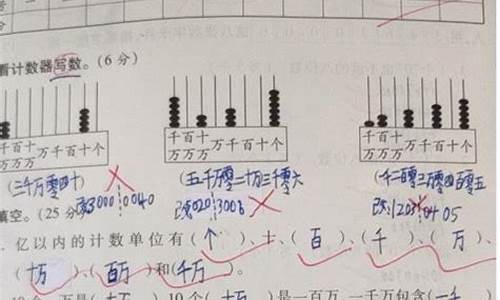 看计数器写数。(6分)
千百十万千百十个
万万万
千百十万千百十个
万万万
千百十万千百十个
万万万
(三千万零四十)
(五千万零二十万三千零六)
(千二百零三万零四百零五)
改3000 0040
改:5020 3006
改:1203 04 05
填空。(25分)
亿以内的计数单位有(个)、十、(百)、(千)、(万)、
(十万)、(百万)和(千万)。
是一百万,一千万包含(一千